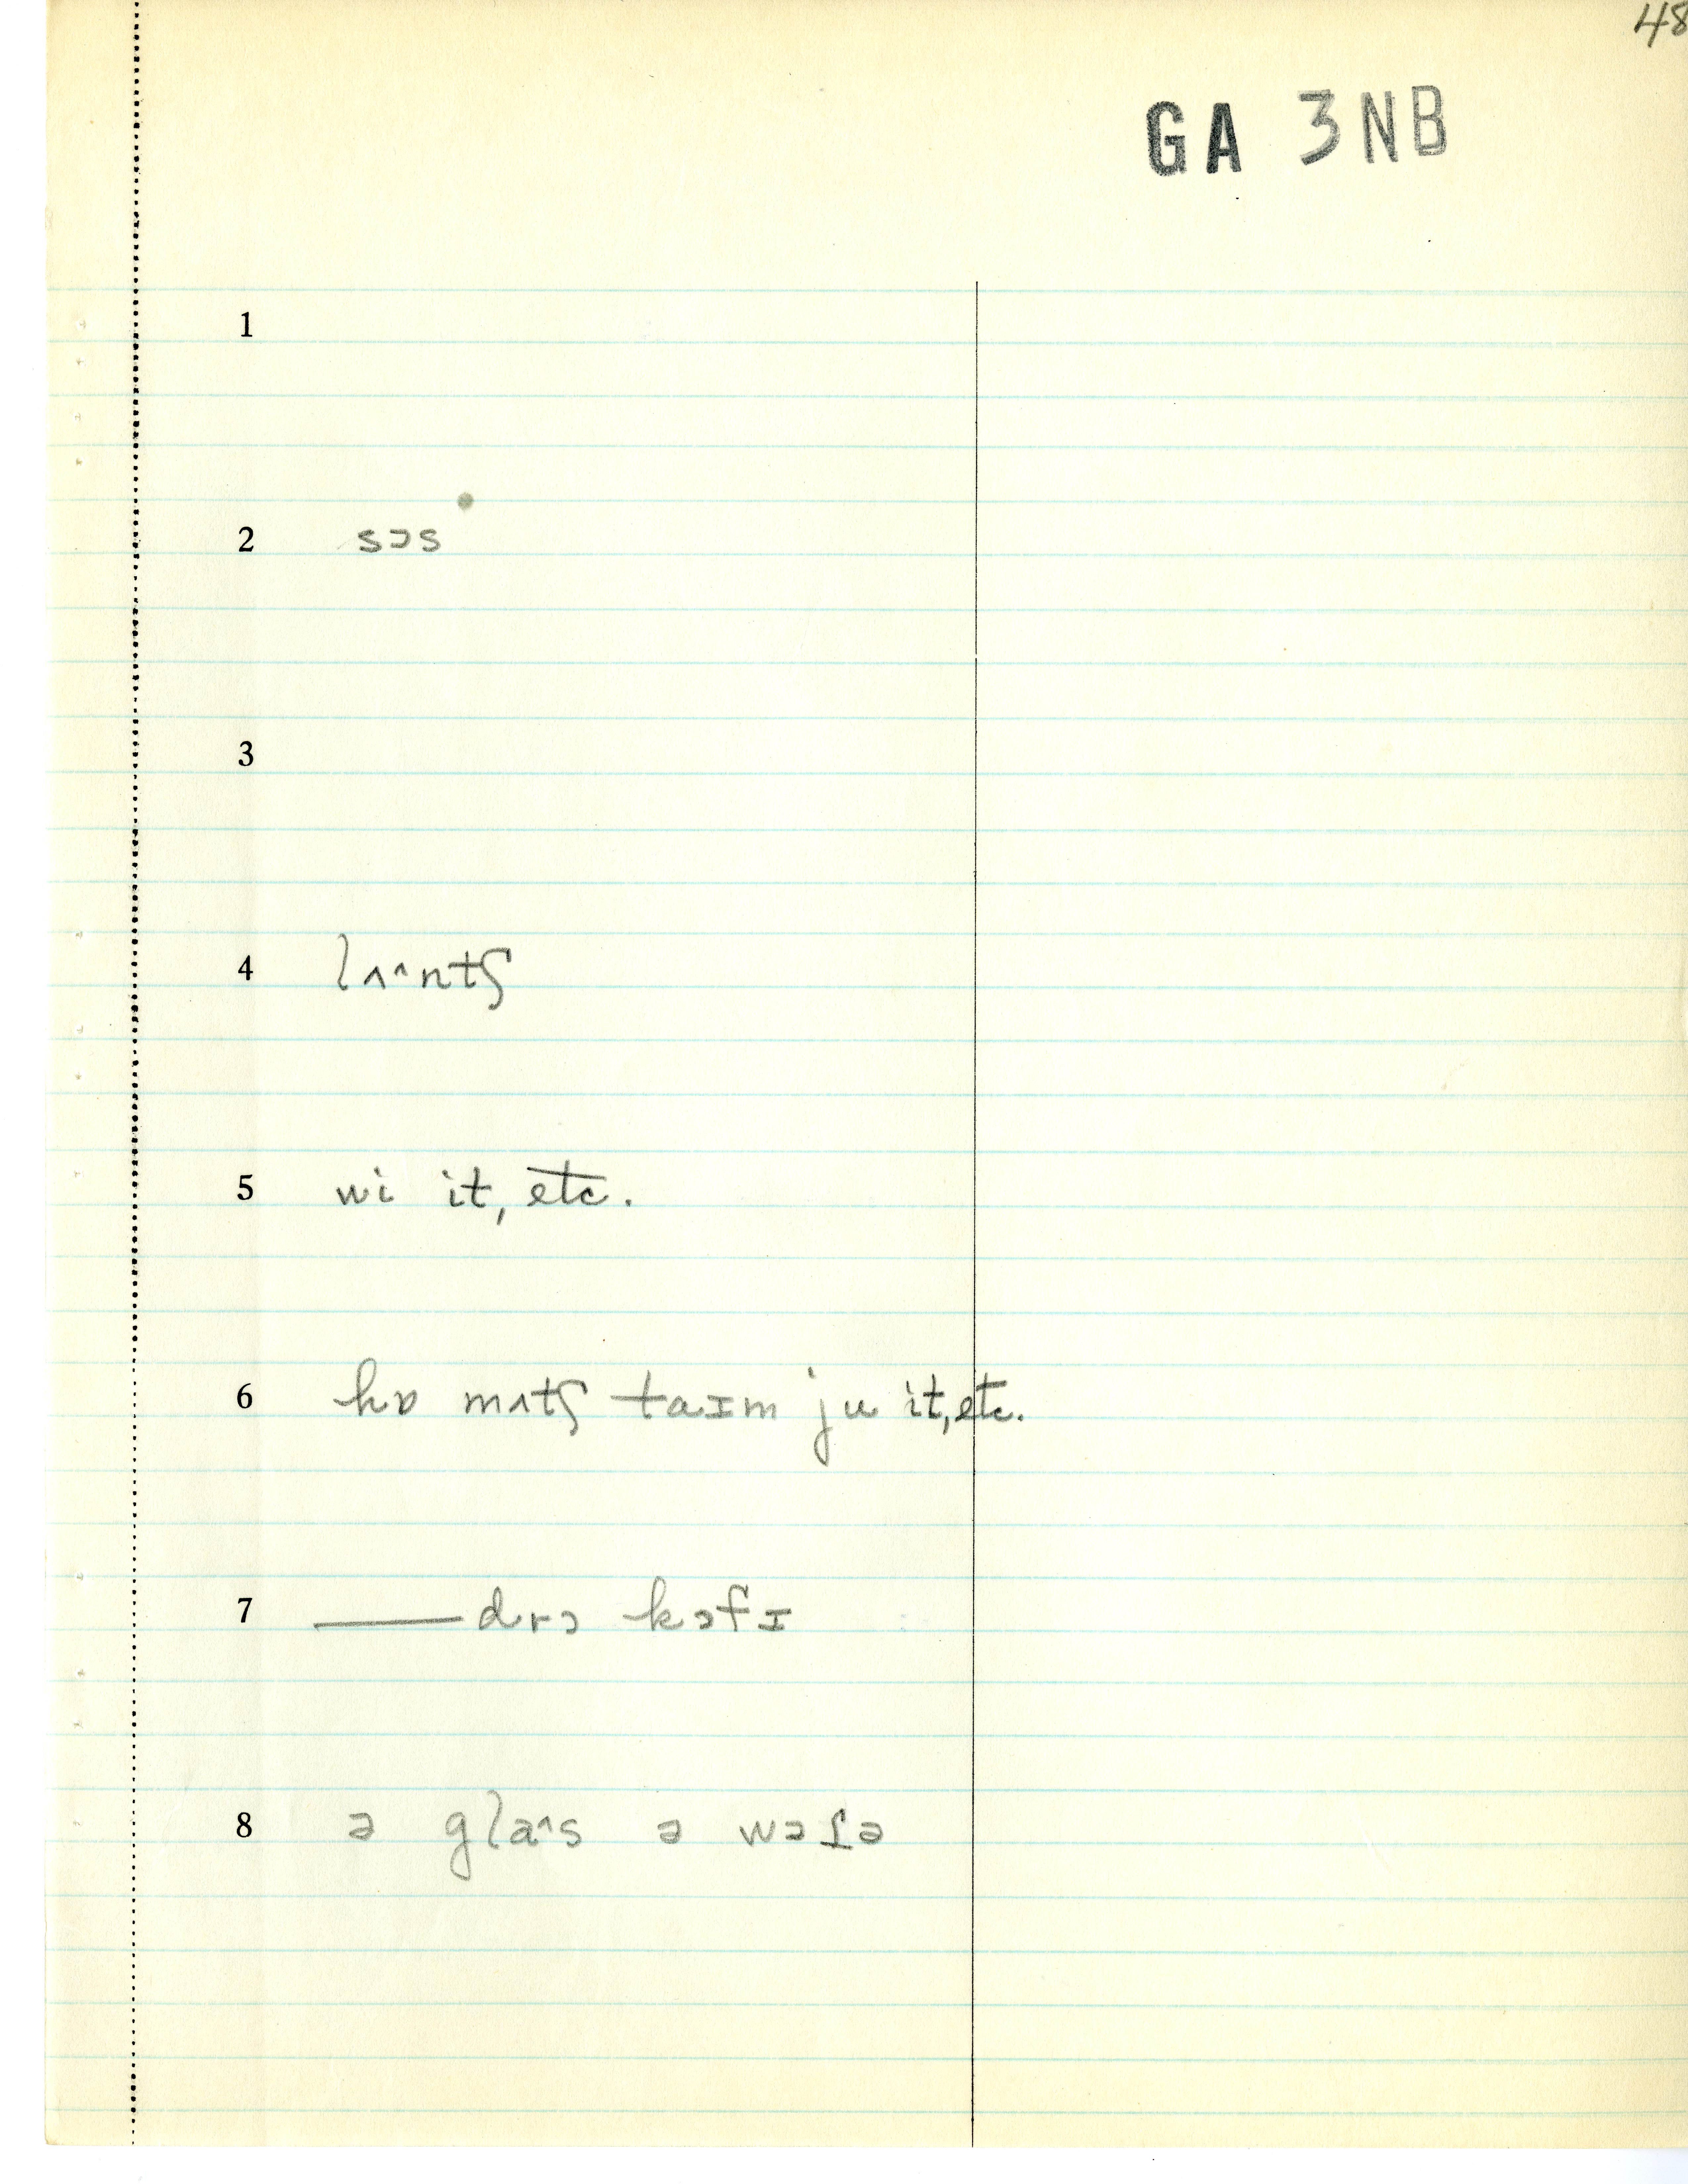 48
GA 3NB
1
2 sɔs
3
4 lʌ^ntʃ
5 wi it, etc.
6 hɒ mʌtʃ taɪm ju it, etc.
7 ——— drɔ kɔfɪ
8 ə gla^s ə wɔɾə